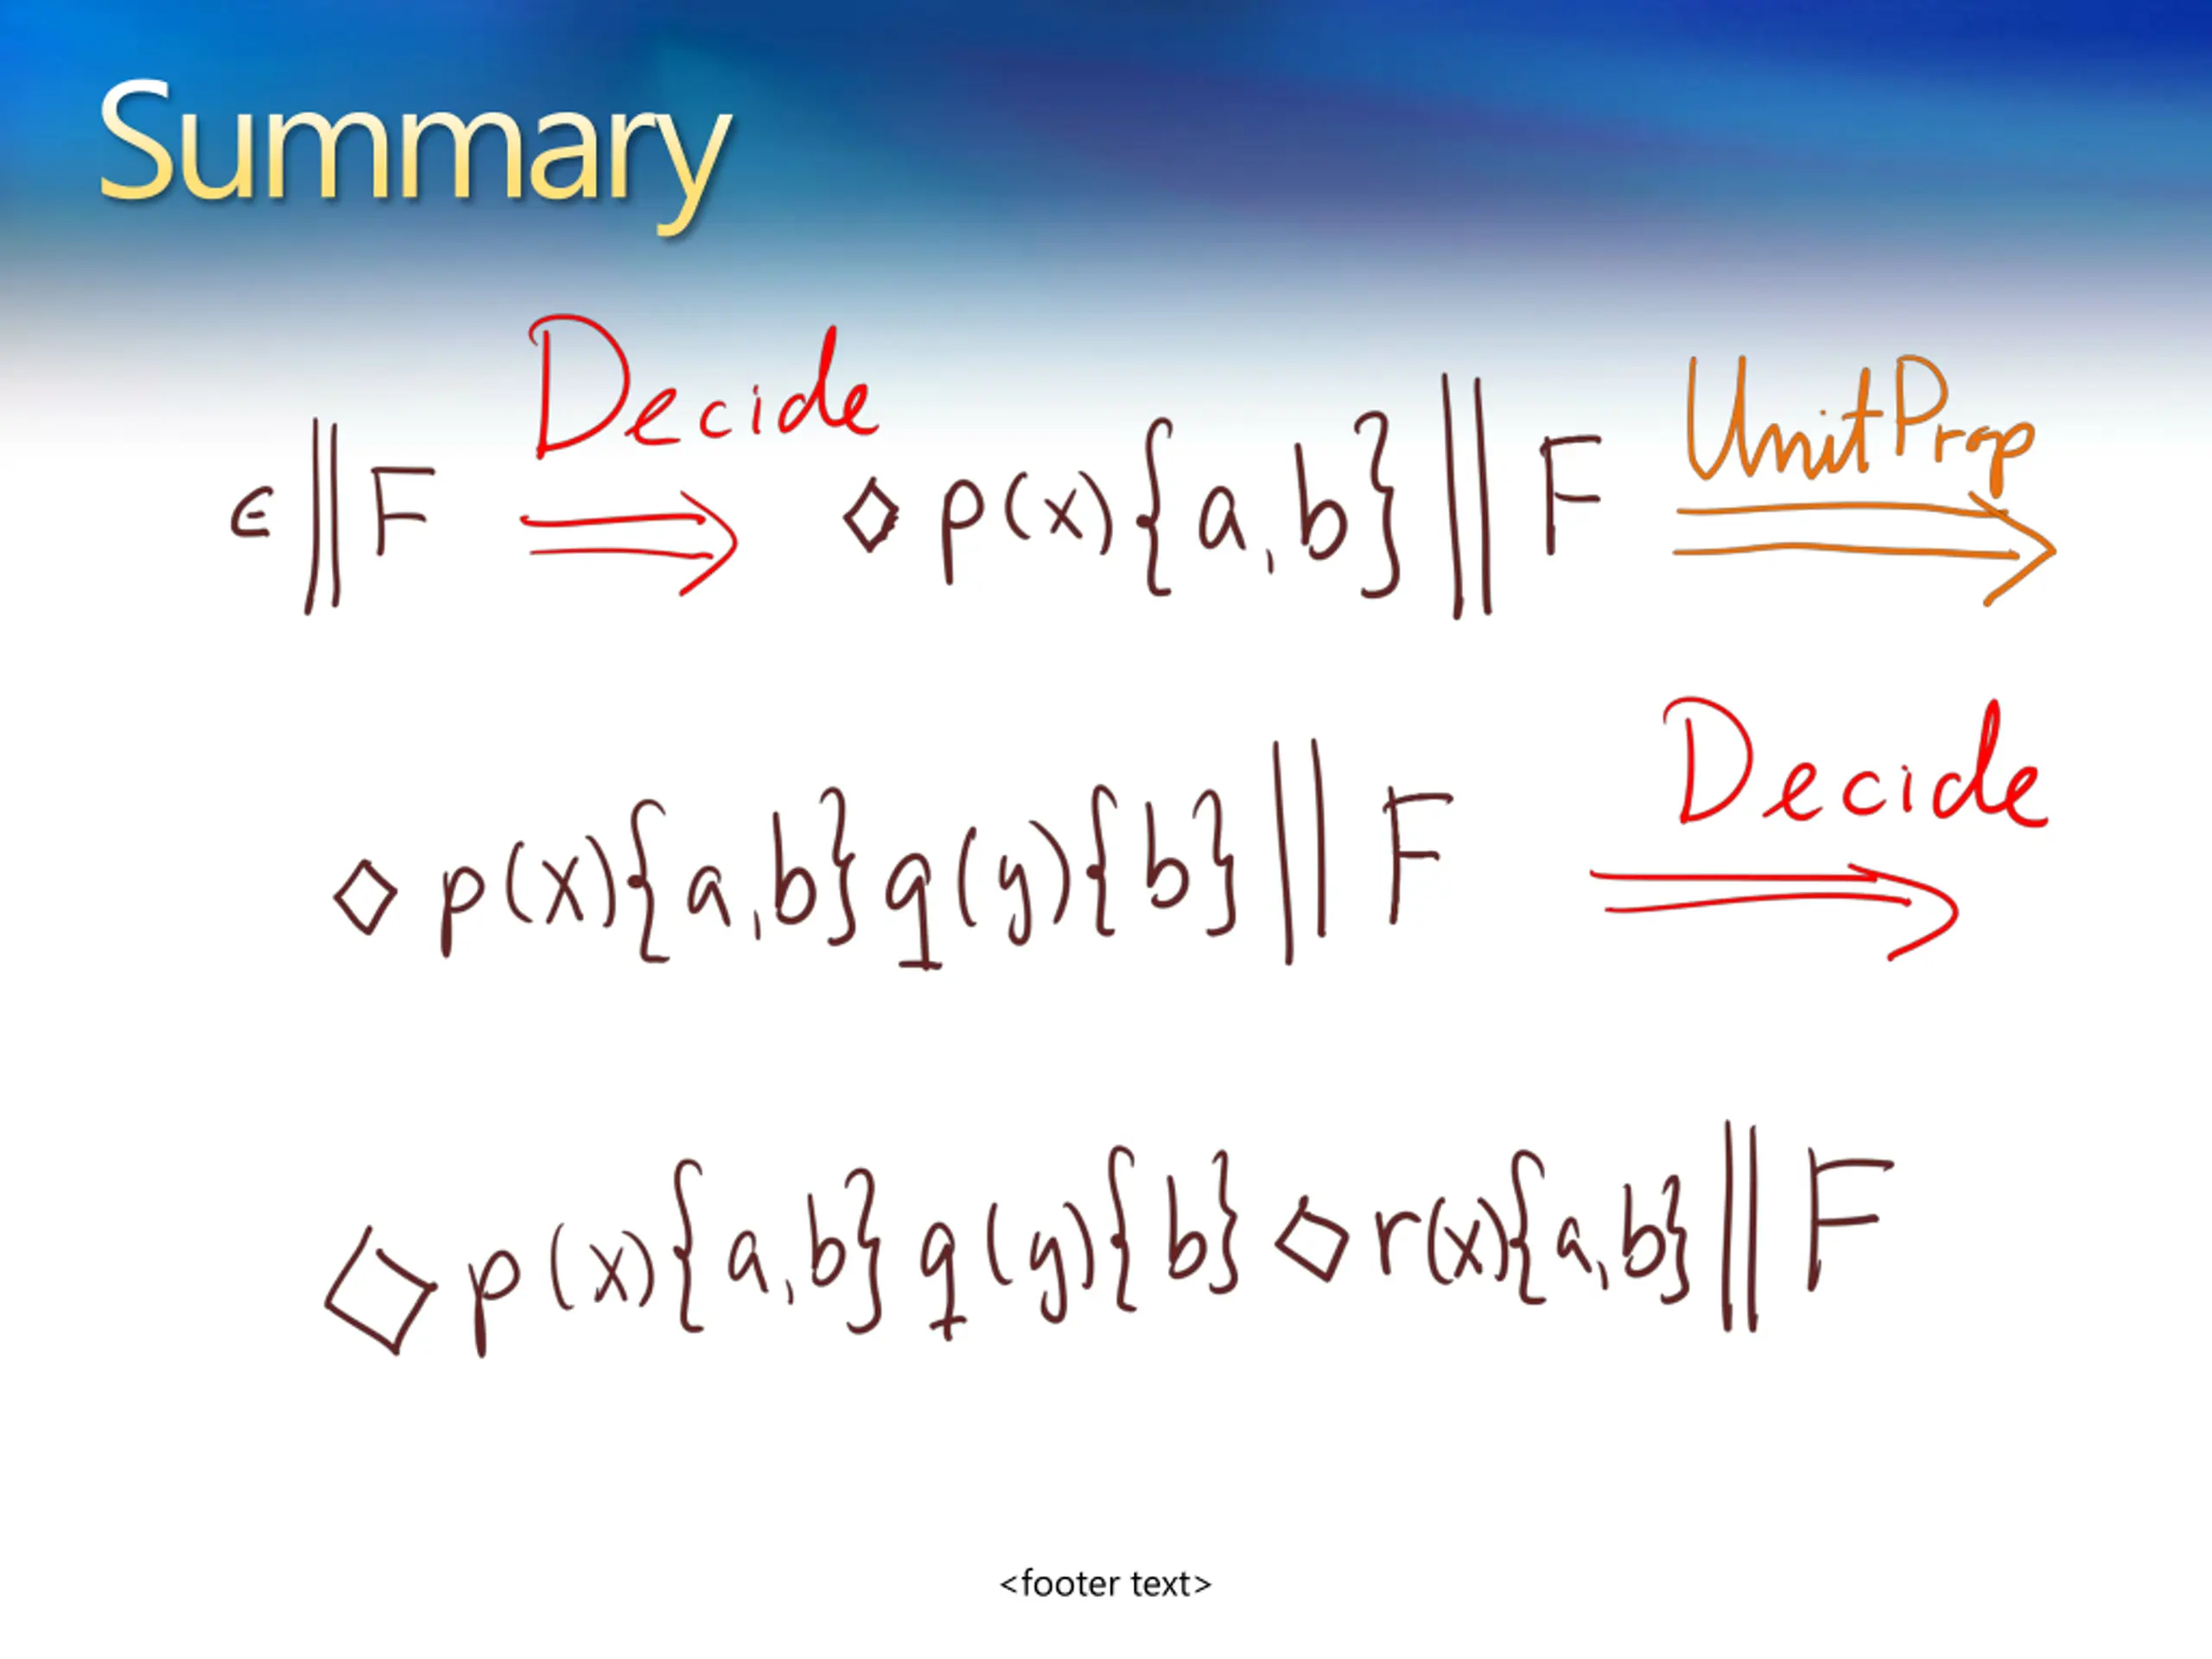 Summary
ϵ || F Decide ⇒ ◇ p(x){a,b} || F UnitProp ⇒
◇ p(x){a,b} q(y){b} || F Decide ⇒
◇ p(x){a,b} q(y){b} ◇ r(x){a,b} || F
<footer text>